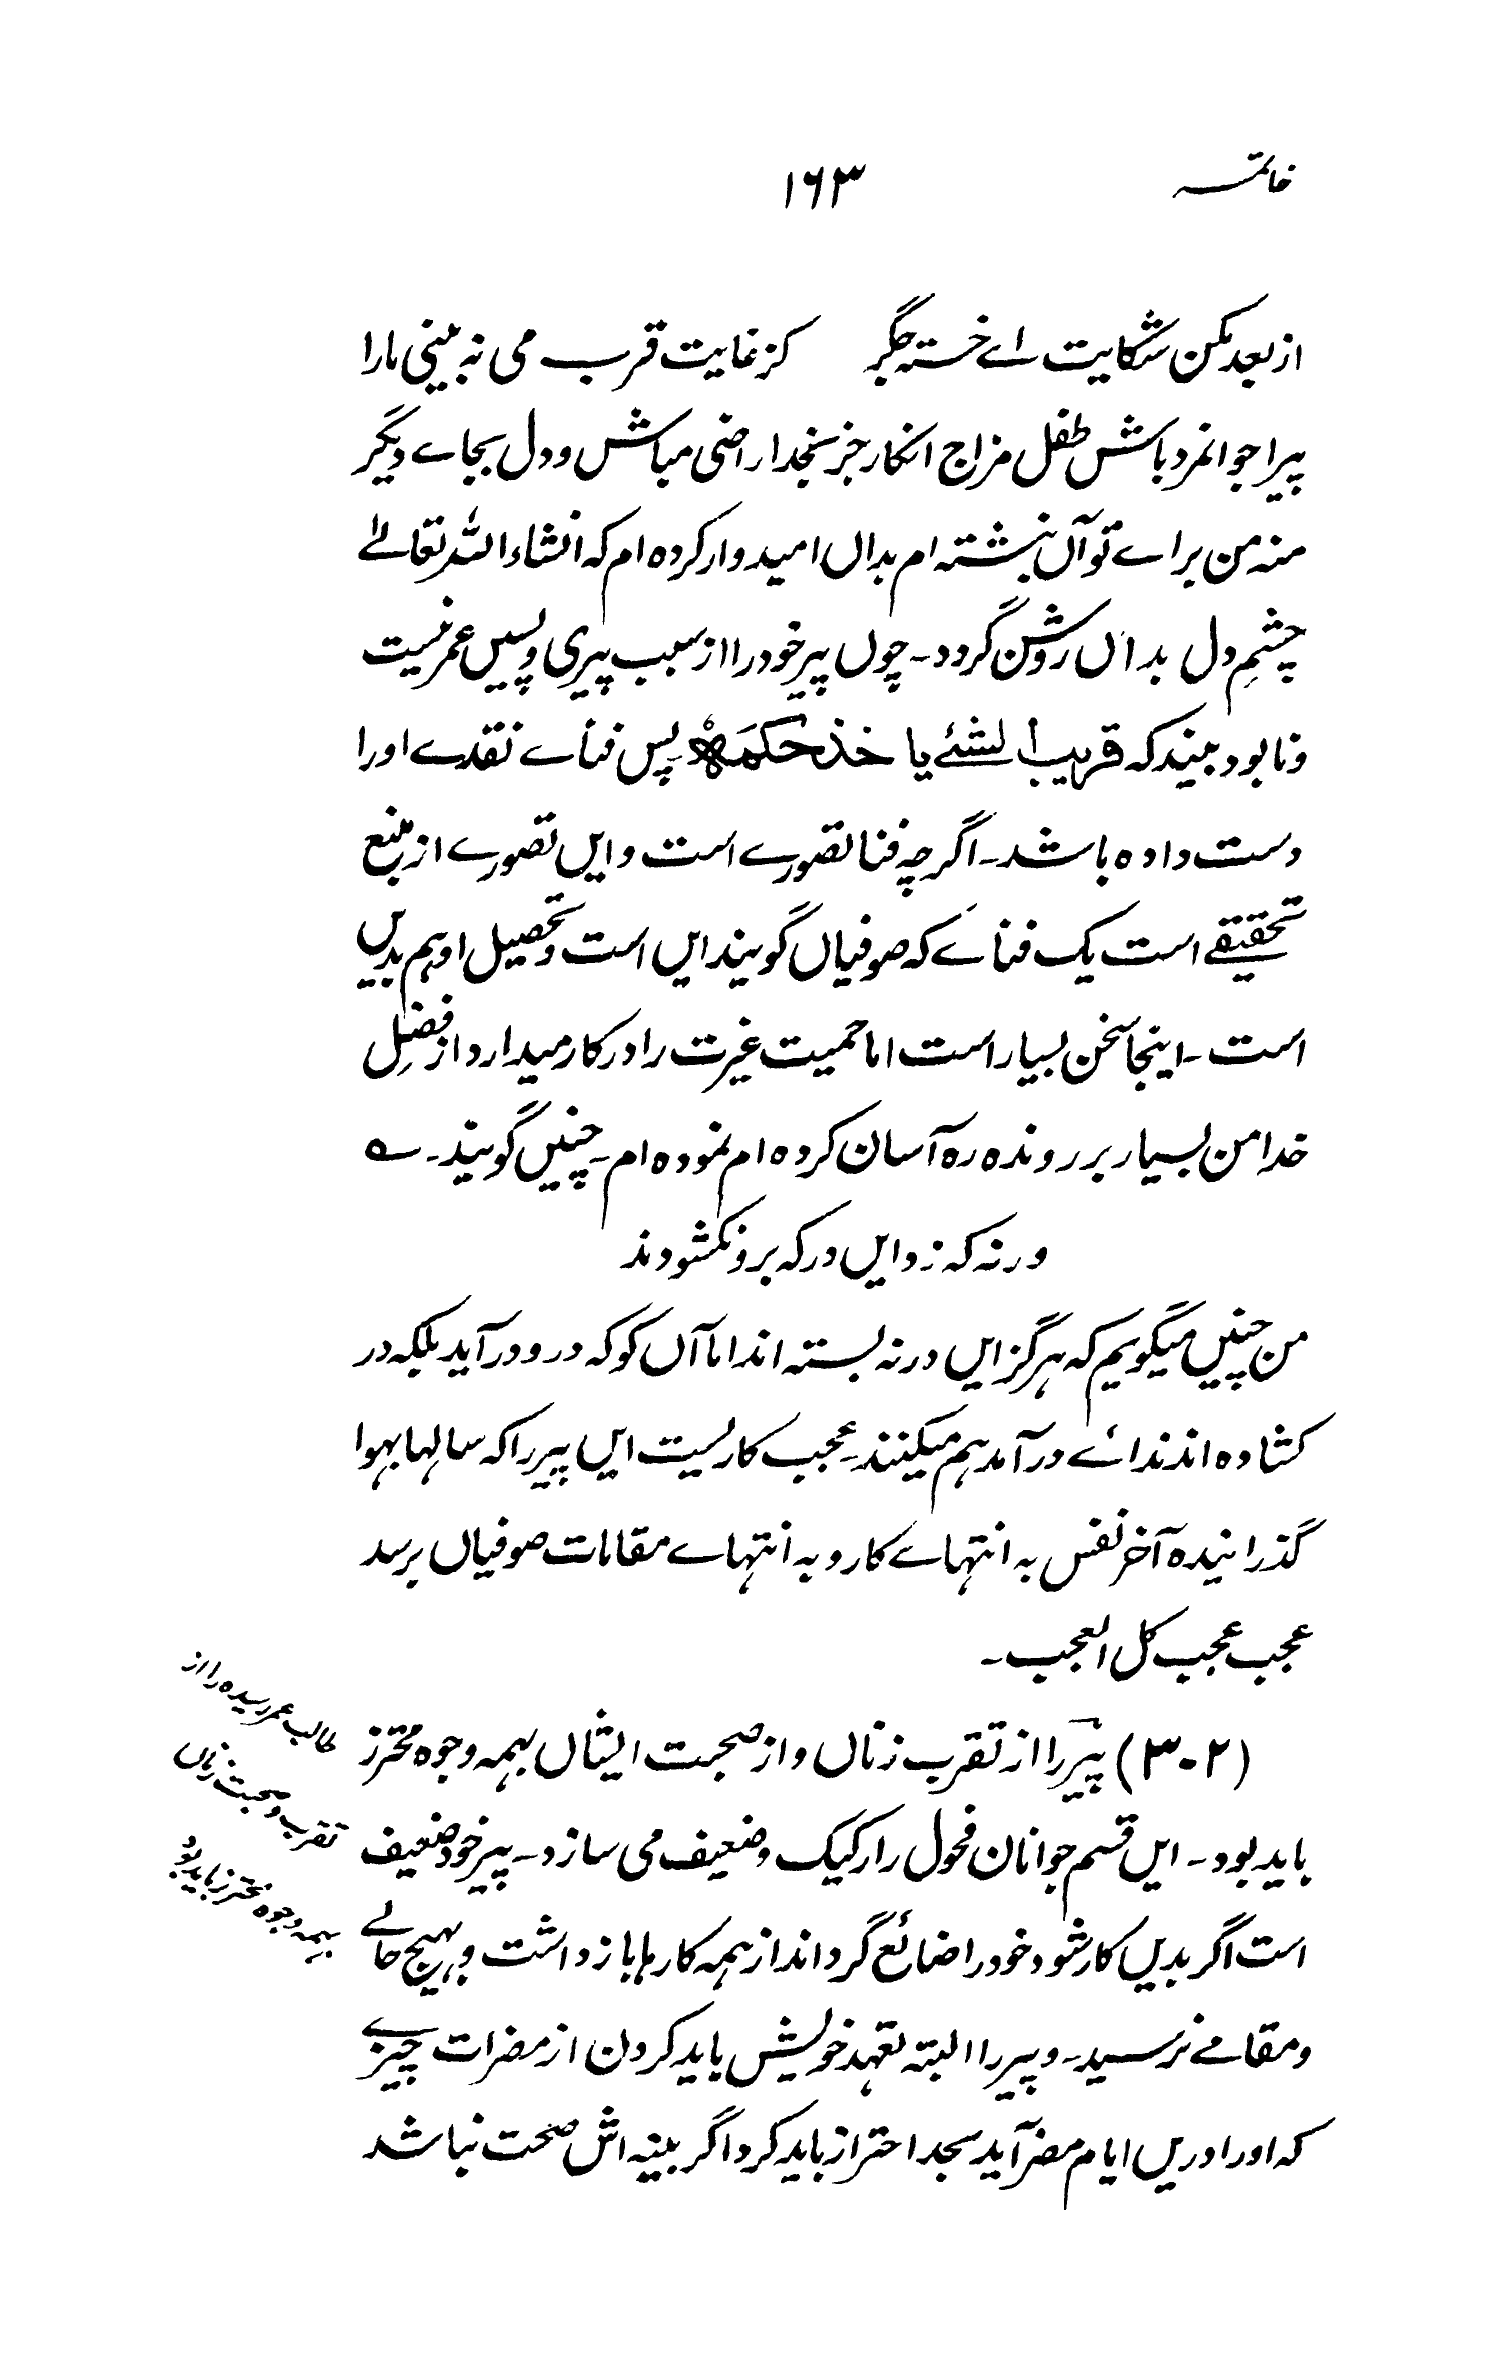 خاتمہ
۱۶۳
از بعد مکن شکایت اے خستہ جگر کز غایت قرب می نہ بینی مارا
پیرا جوانمرد باش طفل مزاج انکار جز بخدا راضی مباش و دل بجاے دیگر
منہ من براے تو آں نبشتہ ام بداں امیدوار کردہ ام کہ انشاء اللہ تعالےٰ
چشمِ دل بداں روشن گردد۔ چوں پیر خود را از سبب پیری و پسیں عمر نیست
و نابود بیند کہ قریب الشئے یا خذ حکمہ پس فناے نقدے اورا
دست دادہ باشد۔ اگرچہ فنا تصورے است و ایں تصورے از منبع
تحقیقے است یک فناے کہ صوفیاں گویند ایں است و تحصیل او ہم بدیں
است۔ اینجا سخن بسیار است اما حمیت غیرت را در کار میدارد از فضلِ
خدا من بسیار بر روندہ رہ آسان کردہ ام نمودہ ام۔ چنیں گویند۔ ؎
ورنہ کہ زد ایں در کہ برو نکشودند
من چنیں میگویم کہ ہرگز ایں در نہ بستہ اند اما آں کو کہ درو در آید بلکہ در
کشادہ اند نداے در آمد ہم میکنند۔ عجب کاریست ایں پیر را کہ سالہا بہوا
گذرانیدہ آخر نفس بہ انتہاے کار و بہ انتہاے مقامات صوفیاں برسد
عجب عجب کل العجب۔
(۳۰۲) پیر را از تقرب زناں و از صحبت ایشاں بہمہ وجوہ محترز
باید بود۔ ایں قسم جوانان فحول را رکیک و ضعیف می سازد۔ پیر خود ضعیف
است اگر بدیں کار شود خود را ضائع گرداند از ہمہ کارہا باز داشت و بہیچ حالے
و مقامے نرسید۔ و پیر را البتہ تعہد خویش باید کردن از مضرات چیزے
کہ او را دریں ایام مضر آید بجد احتراز باید کرد اگر بینہ اش صحت نباشد
طالب عمر رسیدہ را از
تقرب و صحبت زناں
بہمہ وجوہ محترز باید بود